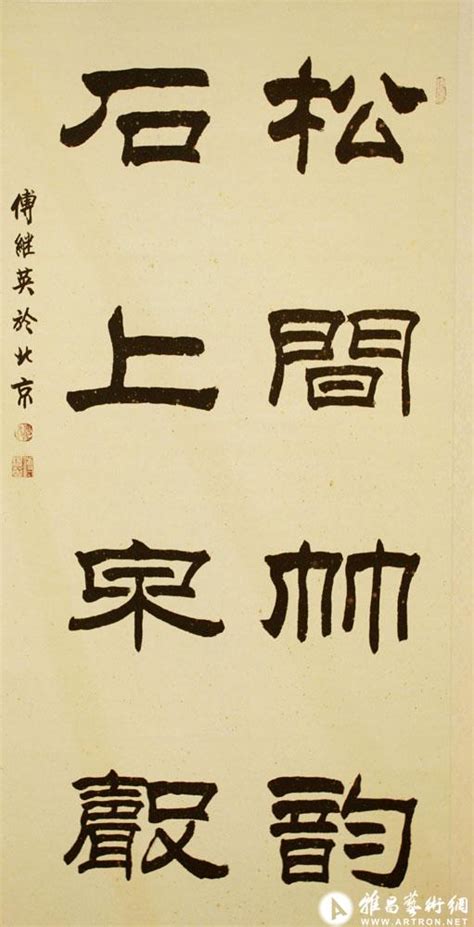 松間竹韵
石上泉聲
傅継英於北京
雅昌藝術網
WWW.ARTRON.NET